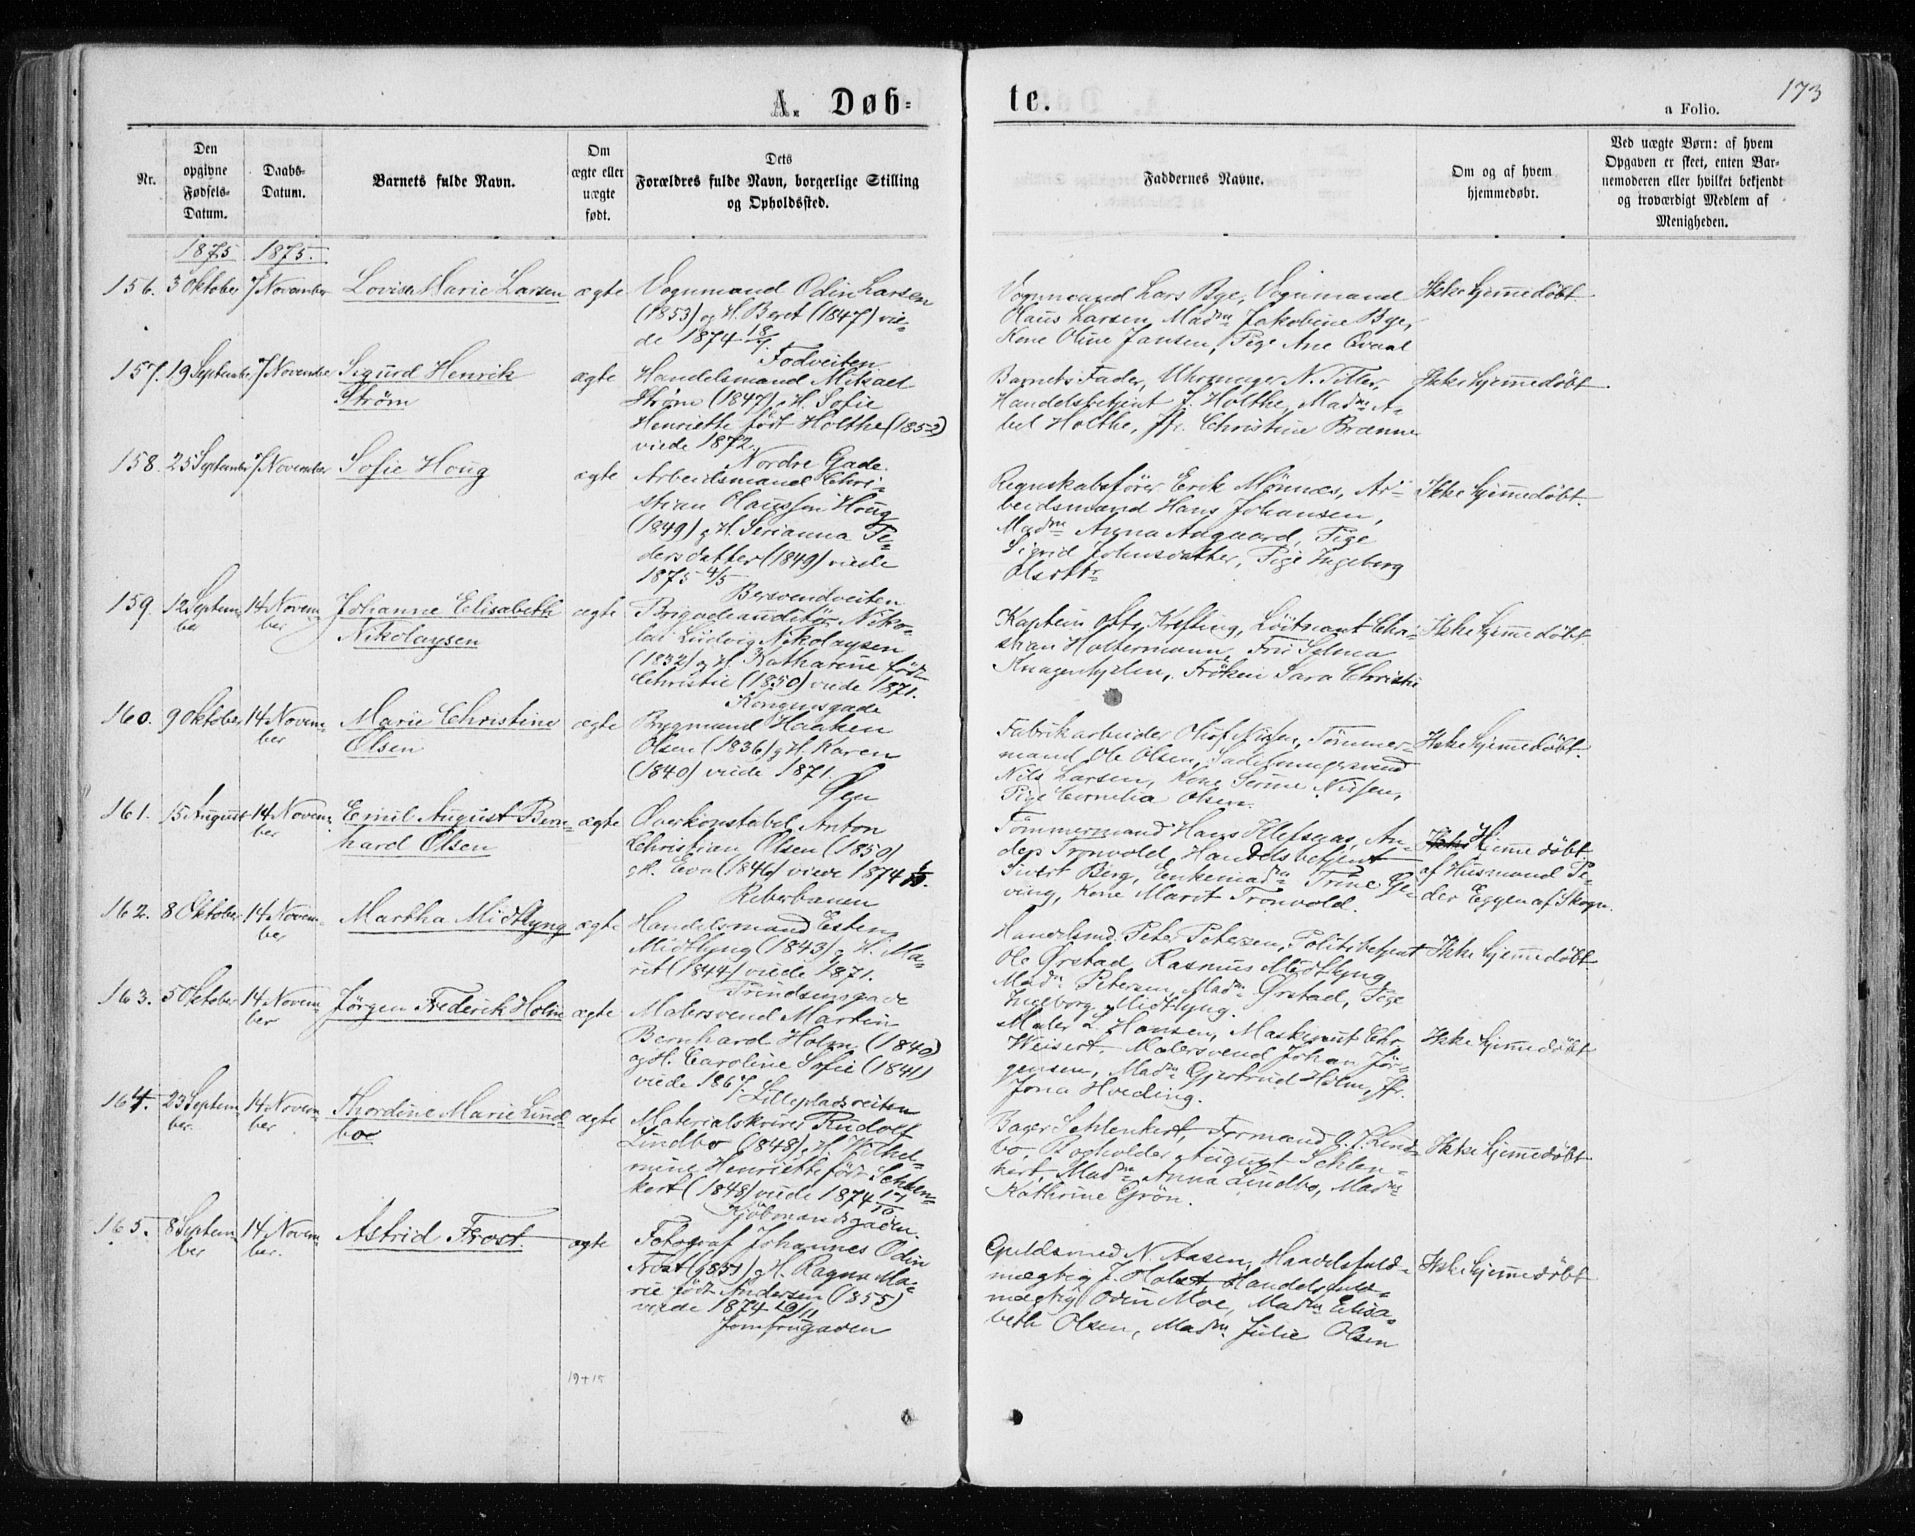 173
A. Døb=
te.
a Folio.
Nr.
Den
opgivne
Fødsels-
Datum.
Daabs-
Datum.
Barnets fulde Navn.
Om
ægte eller
uægte
født.
Dets
Forældres fulde Navn, borgerlige Stilling
og Opholdssted.
Faddernes Navne.
Om og af hvem
hjemmedøbt.
Ved uægte Børn: af hvem
Opgaven er skeet, enten Bar-
nemoderen eller hvilket bekjendt
og troværdigt Medlem af
Menigheden.
1875 1875.
156. 3 Oktober 7 November Lovise Marie Larsen ægte
Vognmand Odin Larsen
(1853) og H. Beret (1847) vie-
de 1874 18/1.
Fodveiten
Vognmand Lars Bye, Vognmand
Olaus Larsen, Madm Jakobine Bye,
Kone Oline Jansen, Pige Ane Qvaal
Ikke hjemmedøbt
157. 19 September 7 November Sigurd Henrik
Strøm
ægte
Handelsmand Mikael
Strøm (1847) g H. Sofie
Henriette født Holthe (1852)
viede 1872.
Nordre Gade.
Barnets Fader, Uhrmager N. Titter,
Handelsbetjent J. Holthe, Madm A-
bel Holthe, Jfr. Christine Brænne
Ikke hjemmedøbt.
158. 25 September 7 November Sofie Houg ægte
Arbeidsmand Chri-
stian Olaussen Houg
(1849) g H. Serianna Pe-
dersdatter (1849) viede
1875 4/5
Bersvendveiten
Regnskabsfører Erik Mønnes, Ar-
beidsmand Hans Johansen,
Madm Anna Aagaard, Pige
Sigrid Johnsdatter, Pige Ingeborg
Olsdtr
Ikke hjemmedøbt.
159. 12 Septem-
ber
14 Novem-
ber
Johanne Elisabeth
Nikolaysen
ægte
Brigadeauditør Niko-
lai Ludvig Nikolaysen
(1832) og H. Katharine født
Christie (1850) viede 1871.
Kongensgade
Kaptein Krefting, Löitnant Chri-
stian Holtermann, Fru Selma
Knagenhjelm, Fröken Sara Christie
Ikke hjemmedøbt.
160. 9 Oktober 14 Novem-
ber
Marie Christine
Olsen
ægte
Brygmand Haaken
Olsen (1836) g H. Karen
(1840) viede 1871.
Øen
Fabrikarbeider Olof Nilsen, Tømmer-
mand Ole Olsen, Sadelmagersvend
Nils Larsen, Kone Serine Nilsen,
Pige Cornelia Olsen.
Ikke hjemmedøbt.
161. 15 August 14 Novem-
ber
Emil August Bern-
hard Olsen
ægte
Overkonstabel Anton
Christian Olsen (1850)
g H. Eva (1846) viede 1874
Reberbanen
Tömmermand Hans Klefsaas, An-
ders Tronvold, Handelsbetjent
Sivert Berg, Enkemadm Trine Ge-
ving, Kone Marit Tronvold.
Ikke Hjemmedøbt
af Husmand Pe-
der Eggen af Skogn.
162. 8 Oktober 14 Novem-
ber
Martha Midtlyng ægte
Handelsmand Esten
Midtlyng (1843) g H. Ma-
rit (1844) viede 1871.
Prindsensgade
Handelsmd Peter Petersen, Politibetjent
Ole Ørstad, Rasmus Midtlyng
Madm Petersen, Madm Ørstad, Pige
Ingeborg Midtlyng.
Ikke hjemmedøbt
163. 5 Oktober 14 Novem-
ber
Jørgen Frederik Holm ægte
Malersvend Martin
Bernhard Holm (1840)
og H. Caroline Sofie (1841)
viede 1867.
Lilleplads veiten
Maler L. Hansen, Maskinist Chr
Weisert, Malersvend Johan Jör-
gensen, Madm Gjertrud Holm, Jfr.
Jona Hveding.
Ikke hjemmedøbt
164. 23 Septem-
ber.
14 Novem-
ber
Thordine Marie Lind-
boe
ægte
Materialskriver Rudolf
Lindbo (1848) g H. Vilhel-
mine Henriette født Schlen-
kert (1848) viede 1874 17/10.
Kjöbmandsgaden.
Bager Schlenkert, Formand O. J. Lind-
bo, Bogholder August Schlen-
kert, Madm Anna Lindbo, Madm
Kathrine Grön.
Ikke hjemmedøbt
165. 8 Septem-
ber
14 Novem-
ber.
Astrid Frost. ægte
Fotograf Johannes Odin
Frost (1851) g H. Ragna Ma-
rie født Andersen (1855)
viede 1874 20/11
Jomfrugaden
Guldsmed N. Aasen, Handelsfuld-
mægtig J. Holst, Handelsfuld-
mægtig Odin Moe, Madm Elisa-
beth Olsen, Madm Julie Olsen
Ikke hjemmedøbt
19+15